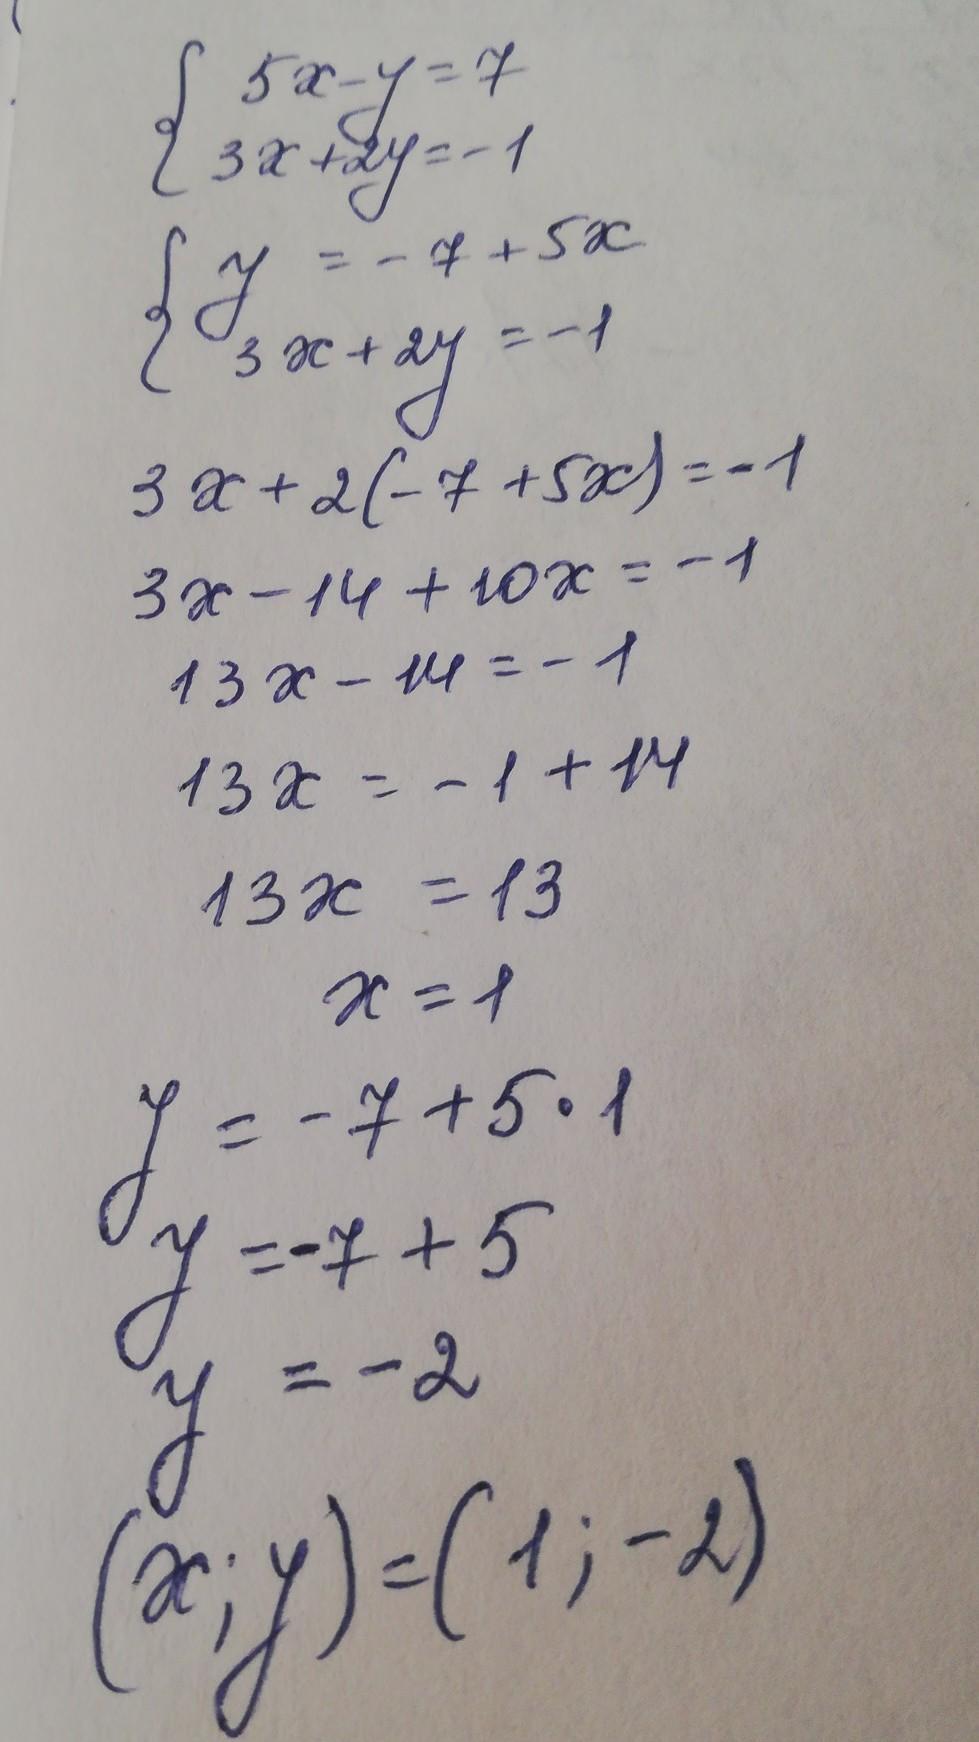 { 5x-y=7
3x+2y=-1
{ y = -7+5x
3x+2y=-1
3x+2(-7+5x)=-1
3x-14+10x=-1
13x-14=-1
13x=-1+14
13x=13
x=1
y=-7+5·1
y=-7+5
y=-2
(x;y)=(1;-2)